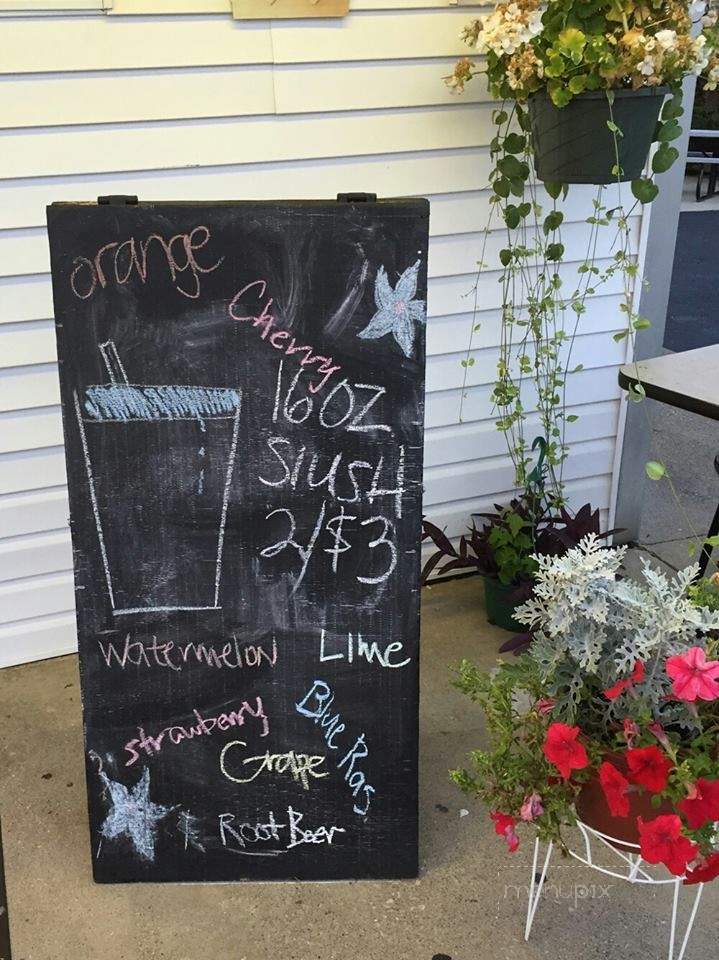 orange
Cherry
16 oz
Slush
2/$3
Watermelon
Lime
strawberry
Blue Ras
Grape
Root Beer
menupix